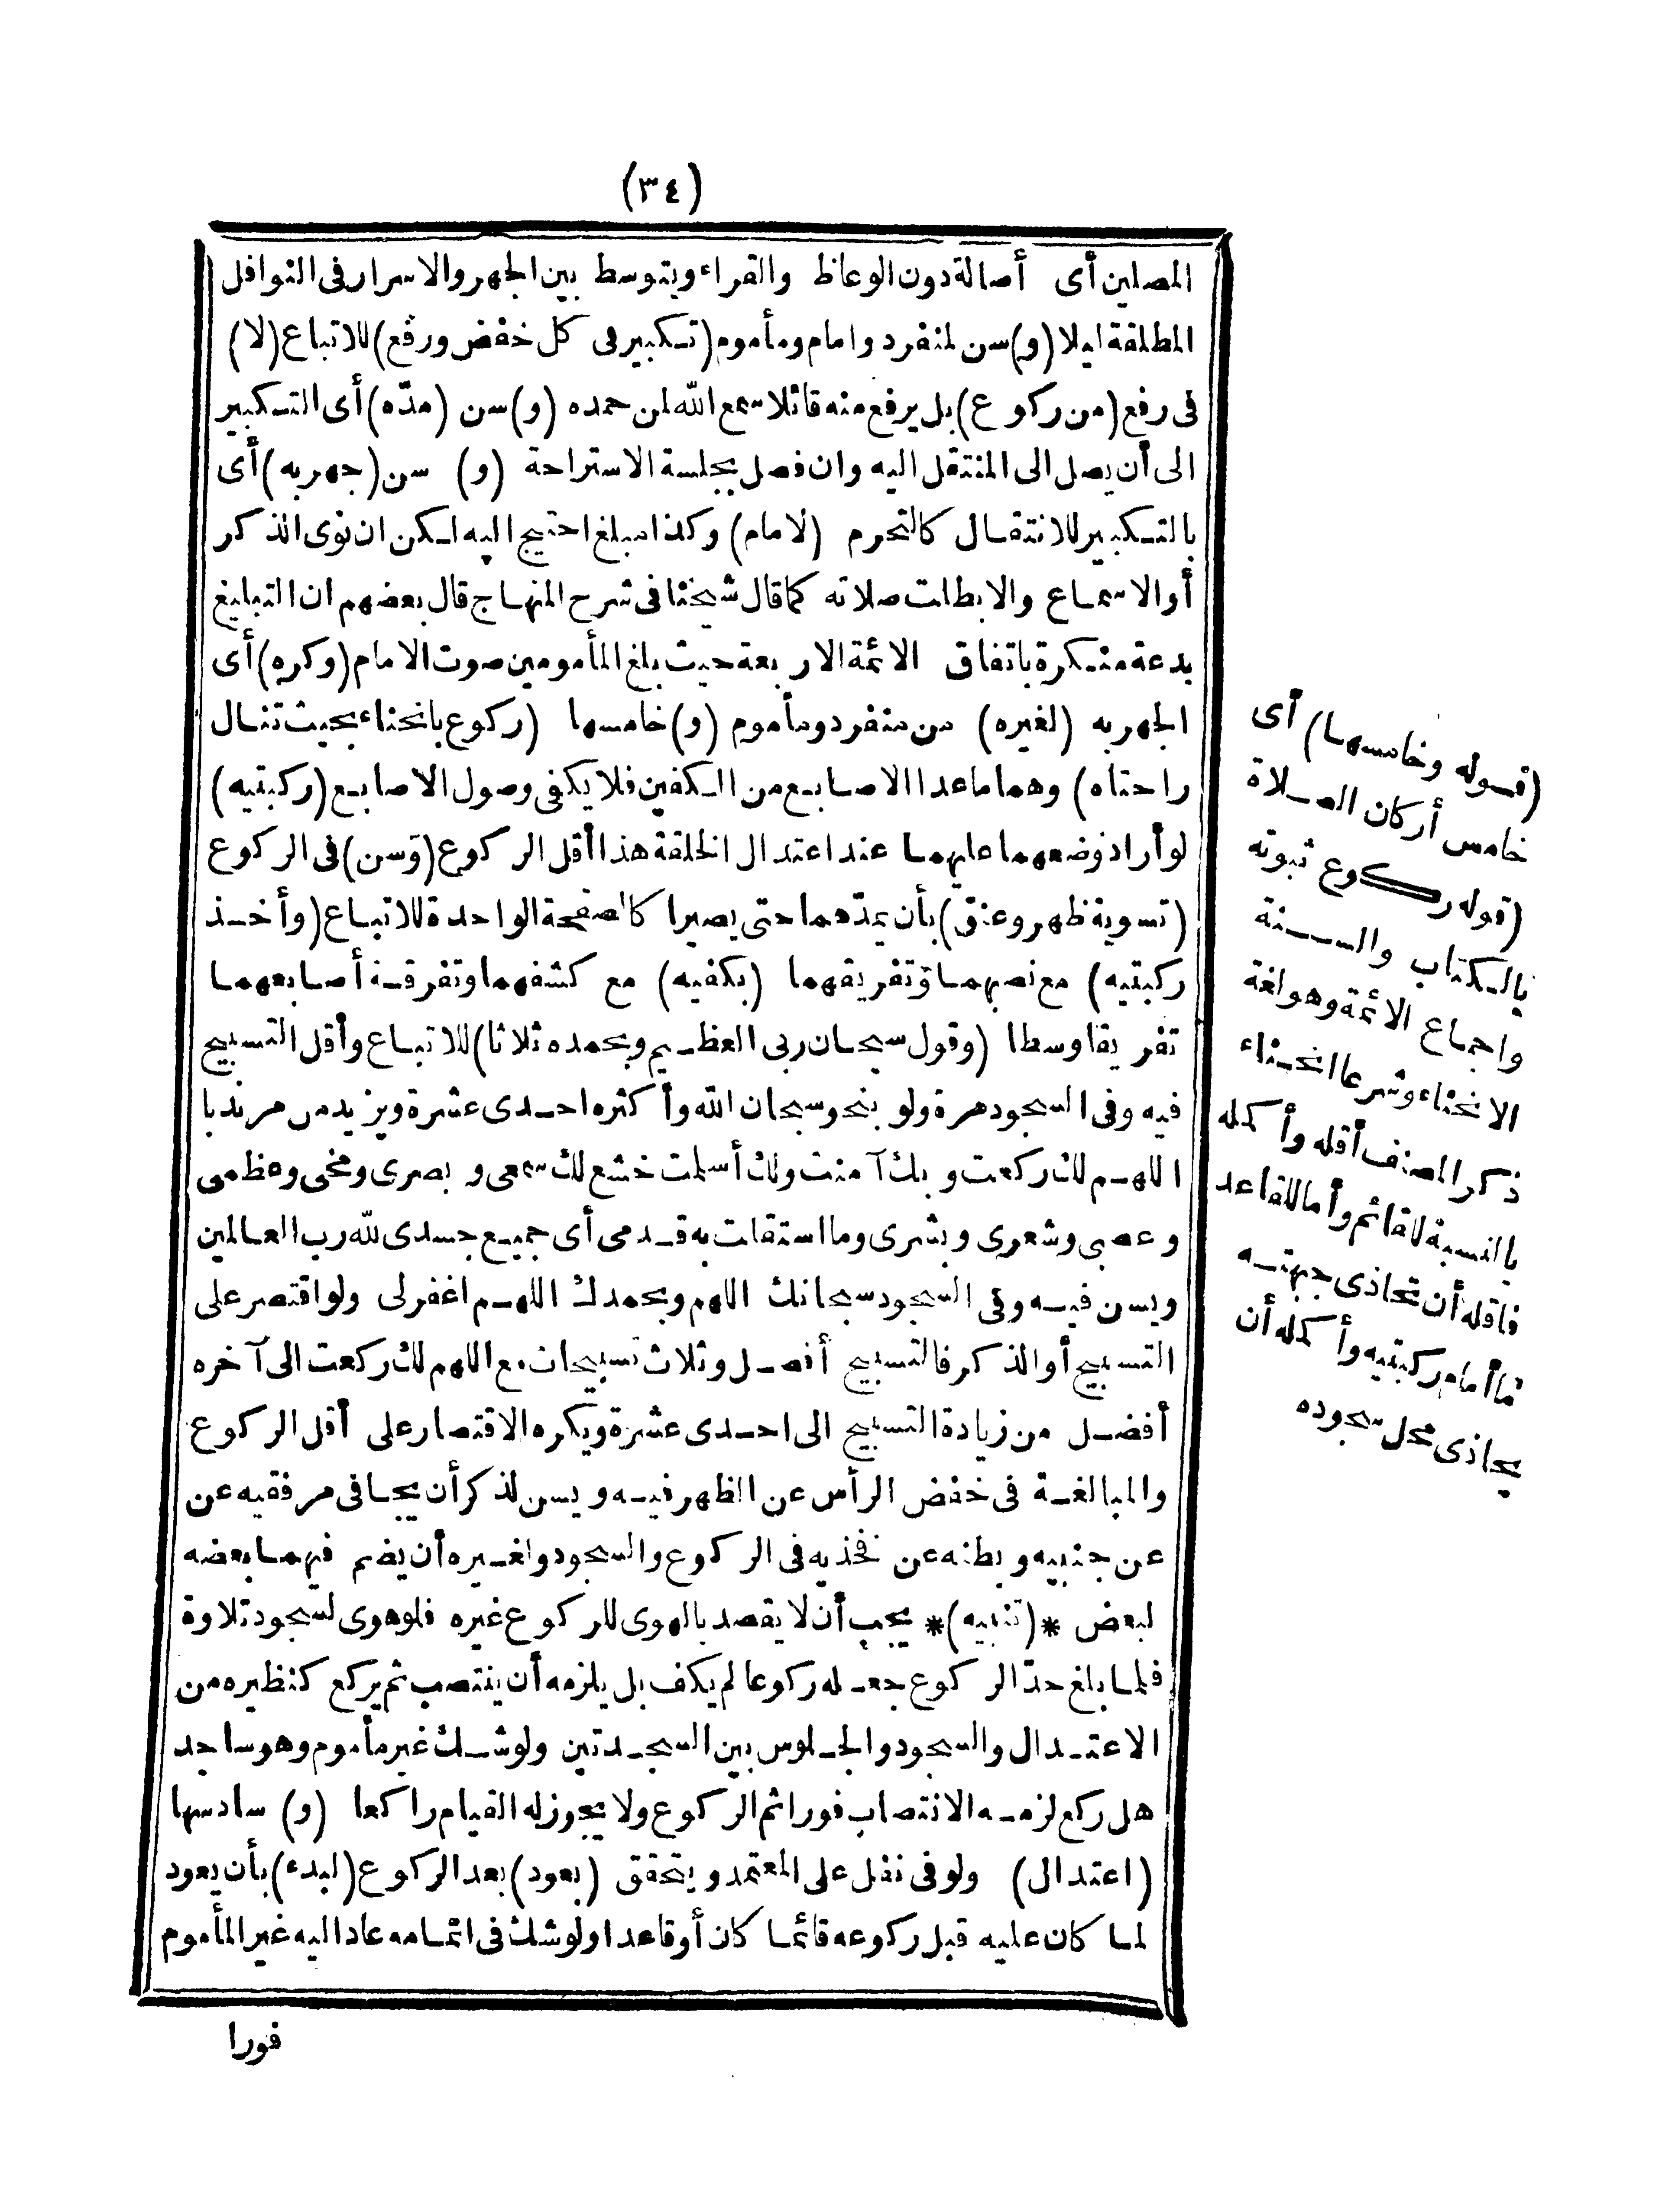 (٣٤)
المصلين أى أصالة دون الوعاظ والقراء ويتوسط بين الجهر والاسرار فى النوافل
المطلقة ليلا (و) سن لمنفرد وامام ومأموم (تكبير فى كل خفض ورفع) للاتباع (لا)
فى رفع (من ركوع) بل يرفع منه قائلا سمع الله لمن حمده (و) سن (مدّه) أى التكبير
الى أن يصل الى المنتقل اليه وان فصل بجلسة الاستراحة (و) سن (جهر به) أى
بالتكبير للانتقال كالتحرم (لامام) وكذا مبلغ احتيج اليه لكن ان نوى الذكر
أو الاسماع والا بطلت صلاته كما قال شيخنا فى شرح المنهاج قال بعضهم ان التبليغ
بدعة منكرة باتفاق الائمة الاربعة حيث بلغ المأمومين صوت الامام (وكره) أى
الجهر به (لغيره) من منفرد ومأموم (و) خامسها (ركوع بانحناء بحيث تنال
راحتاه) وهما ما عدا الاصابع من الكفين فلا يكفى وصول الاصابع (ركبتيه)
لو أراد وضعهما عليهما عند اعتدال الخلقة هذا أقل الركوع (وسن) فى الركوع
(تسوية ظهر وعنق) بأن يمدّهما حتى يصيرا كالصفحة الواحدة للاتباع (وأخذ
ركبتيه) مع نصبهما وتفريقهما (بكفيه) مع كشفهما وتفرقة أصابعهما
تفريقا وسطا (وقول سبحان ربى العظيم وبحمده ثلاثا) للاتباع وأقل التسبيح
فيه وفى السجود مرة ولو بنحو سبحان الله وأكثره احدى عشرة ويزيد من مر ندبا
اللهم لك ركعت وبك آمنت ولك أسلمت خشع لك سمعى وبصرى ومخى وعظمى
وعصبى وشعرى وبشرى وما استقلت به قدمى أى جميع جسدى لله رب العالمين
ويسن فيه وفى السجود سبحانك اللهم وبحمدك اللهم اغفر لى ولو اقتصر على
التسبيح أو الذكر فالتسبيح أفضل وثلاث تسبيحات مع اللهم لك ركعت الى آخره
أفضل من زيادة التسبيح الى احدى عشرة ويكره الاقتصار على أقل الركوع
والمبالغة فى خفض الرأس عن الظهر فيه ويسن لذكر أن يجافى مرفقيه عن
عن جنبيه وبطنه عن فخذيه فى الركوع والسجود ولغيره أن يضم فيهما بعضه
لبعض *(تنبيه)* يجب أن لا يقصد بالهوى للركوع غيره فلو هوى لسجود تلاوة
فلما بلغ حدّ الركوع جعله ركوعا لم يكف بل يلزمه أن ينتصب ثم يركع كنظيره من
الاعتدال والسجود والجلوس بين السجدتين ولو شك غير مأموم وهو ساجد
هل ركع لزمه الانتصاب فورا ثم الركوع ولا يجوز له القيام راكعا (و) سادسها
(اعتدال) ولو فى نفل على المعتمد ويتحقق (بعود) بعد الركوع (لبدء) بأن يعود
لما كان عليه قبل ركوعه قائما كان أو قاعدا ولو شك فى اتمامه عاد اليه غير المأموم
فورا
(قوله وخامسها) أى
خامس أركان الصلاة
(قوله ركوع ثبوته
بالكتاب والسنة
واجماع الائمة وهو لغة
الانحناء وشرعا انحناء
ذكر المصنف أقله وأكمله
بالنسبة للقائم وأما للقاعد
فاقله أن تحاذى جبهته
ما أمام ركبتيه وأكمله أن
يحاذى محل سجوده